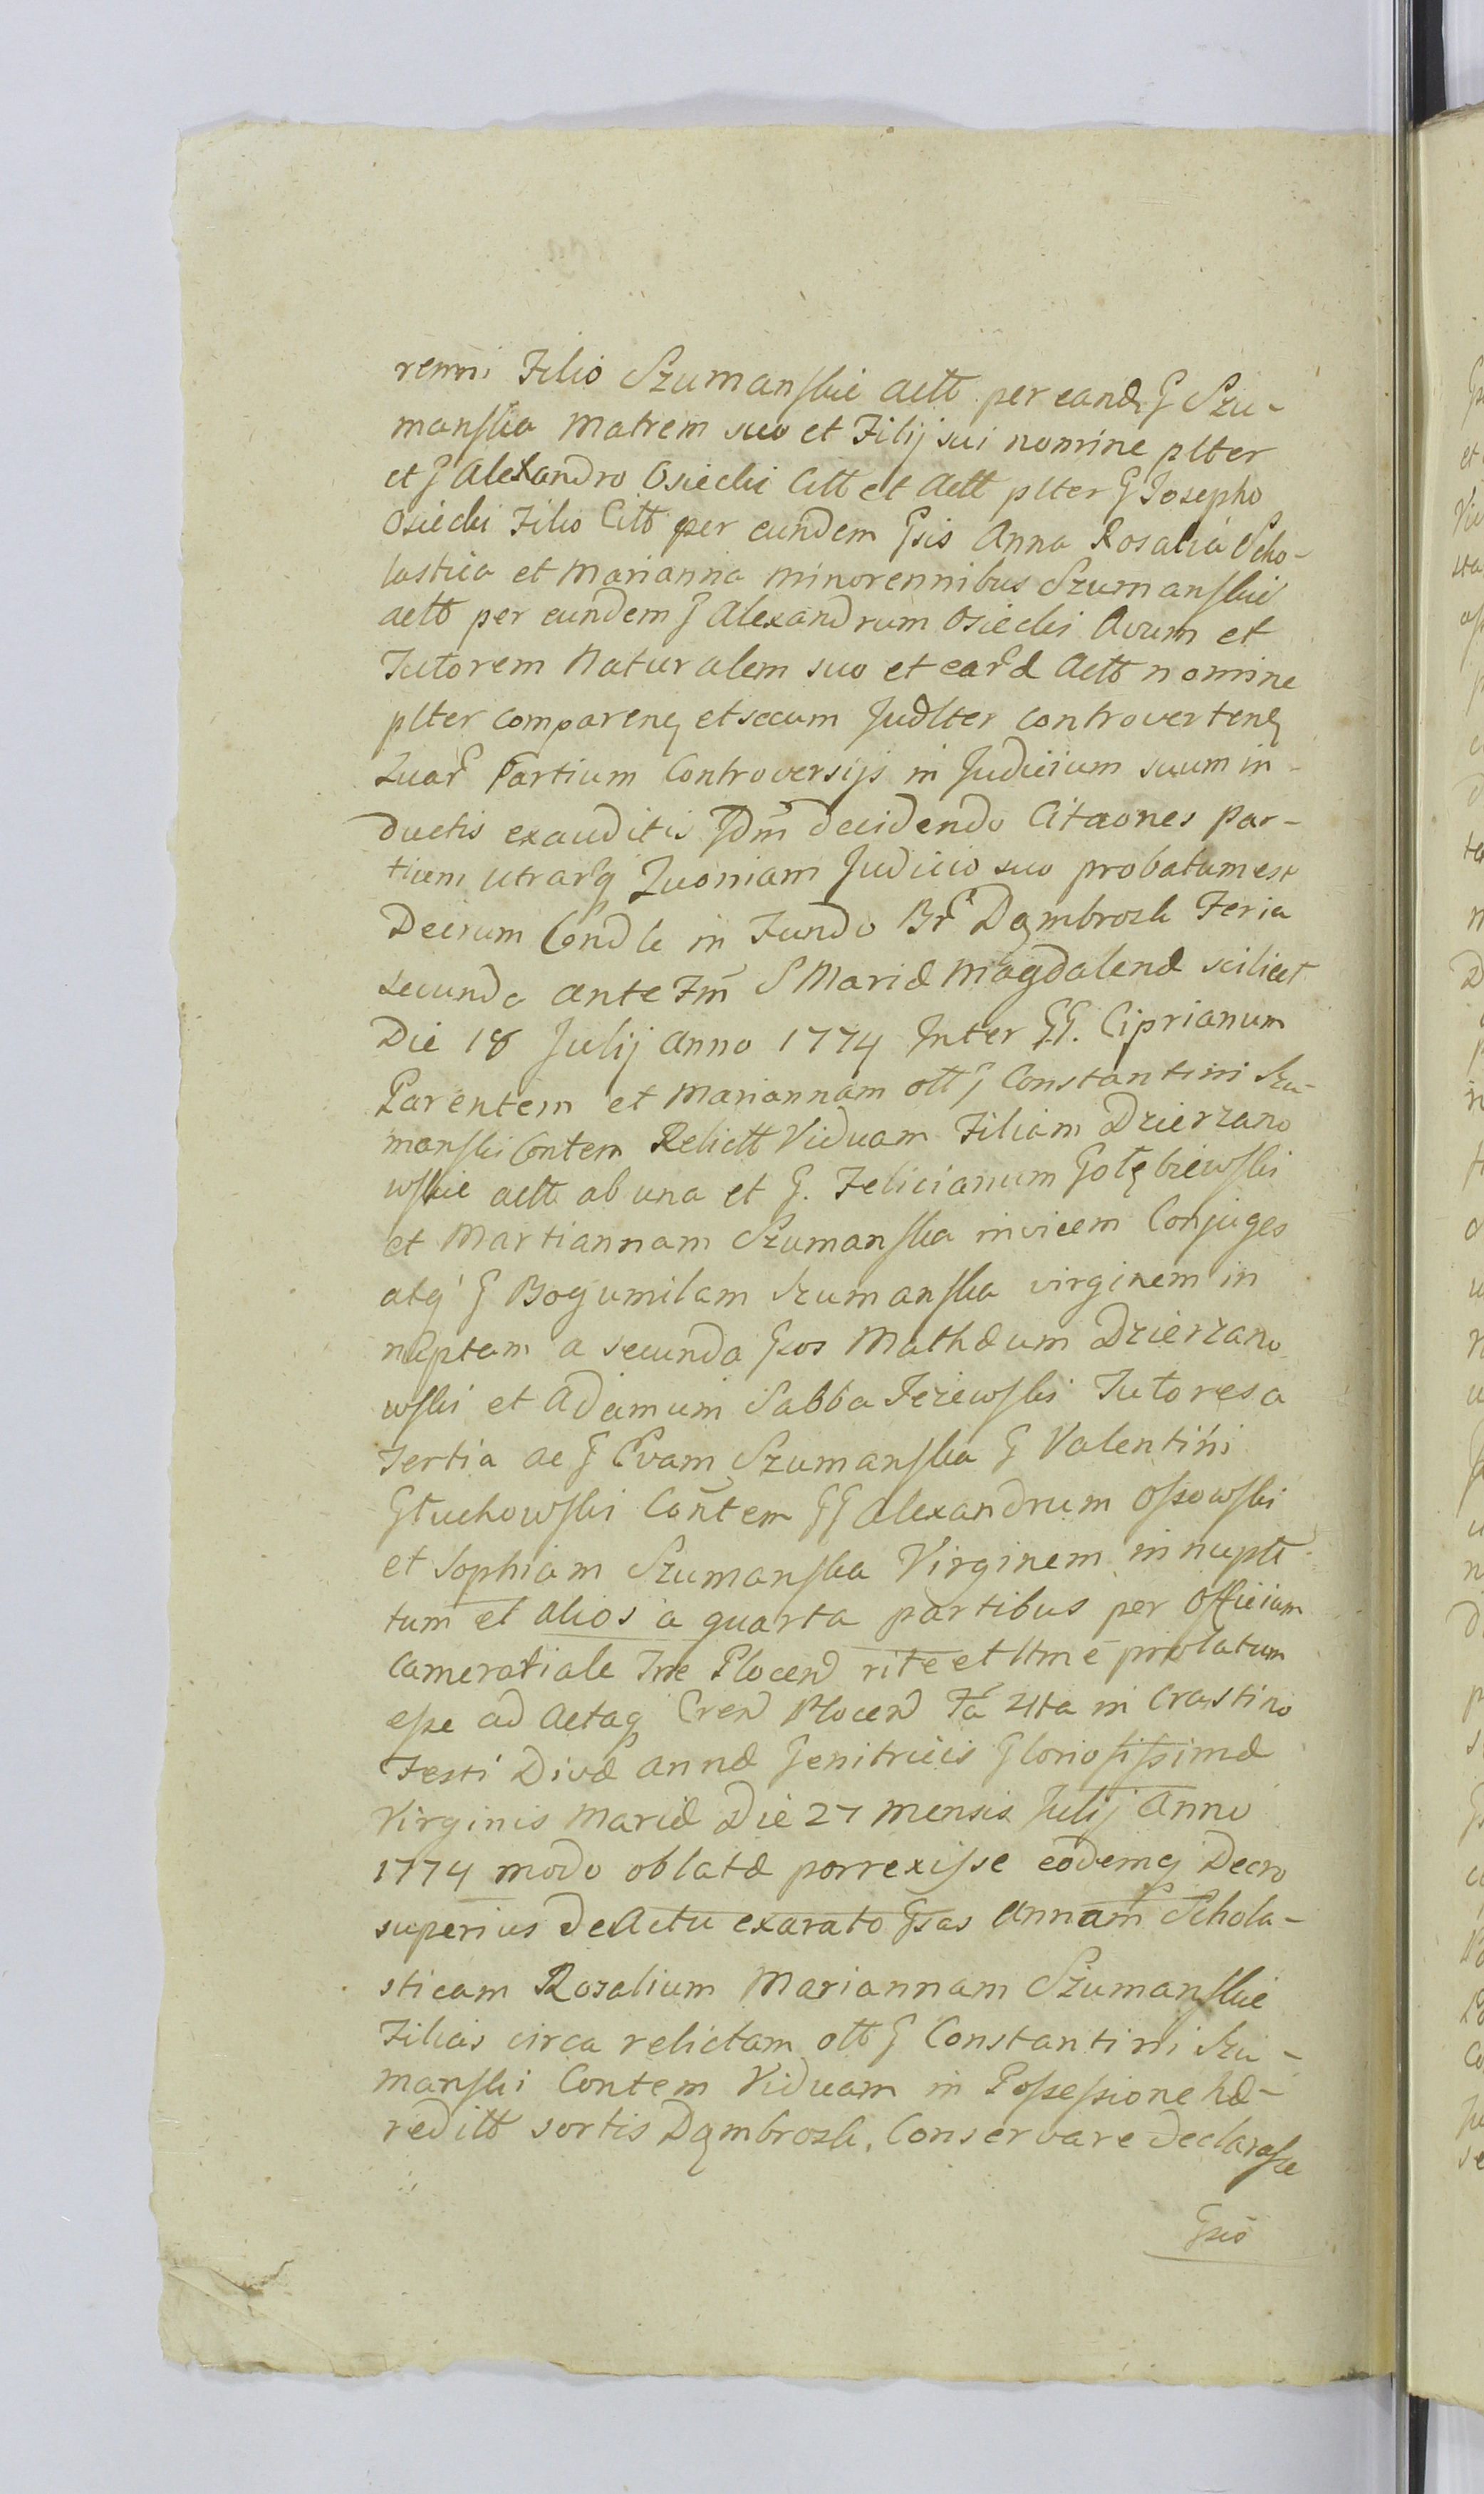 renni Filio Szumanskie actt per eand G Szu-
manska Matrem suo et Filij sui nomine plter
et G Alexandro Osiecki Citt et Actt plter G Josepho
Osiecki Filio Citt per eundem Gsis Anna Rosalia Scho-
lastica et Marianna minorennibus Szumanskie
actt per eundem G Alexandrum Osiecki Avum et
Tutorem Naturalem suo et eard Actt nomine
plter comparenq et secum Judlter controvertenq
Quar Partium Controversijs in Judicium suum in-
ductis exauditis Jdm decidendo Citaones Par-
tium utrarq Quoniam Judicio suo probatum est
Decrum Condle in Fundo Br Dąmbrosk Feria
secunda ante Fm S Mariæ Magdalenæ scilicet
Die 18 Julij Anno 1774 Inter GG. Ciprianum
Parentem et Mariannam ott G Constantini Szu-
manski Contem Relictt Viduam Filiam Dzierzano
wskie actt ab una et G. Felicianum Gołębiewski
et Martiannam Szumanska invicem Conjuges
atq G Bogumilam Szumanska virginem in
nuptam a secunda Gsos Mathæum Dzierzano-
wski et Adamum Sabba Jezewski Tutores a
Tertia ac G Evam Szumanska G Valentini
Głuchowski Contem GG Alexandrum Ossowski
et Sophiam Szumanska Virginem innuptt
tum et alios a quarta partibus per Officium
Cameratiale Tre Plocen rite et ltme prolatum
esse ad Actaq Cren Plocen Fa 4ta in Crastino
Festi Divæ Annæ Genitricis Gloriosissimæ
Virginis Mariæ Die 27 Mensis Julij Anno
1774 modo oblatæ porrexisse eodemq Decro
superius de Actu exarato Gsas Annam Schola-
sticam Rosalium Mariannam Szumanskie
Filias circa relictam ott G Constantini Szu-
manski Contem Viduam in Possessione hæ-
reditt sortis Dąmbrosk. Conservare declarasse
Gsis